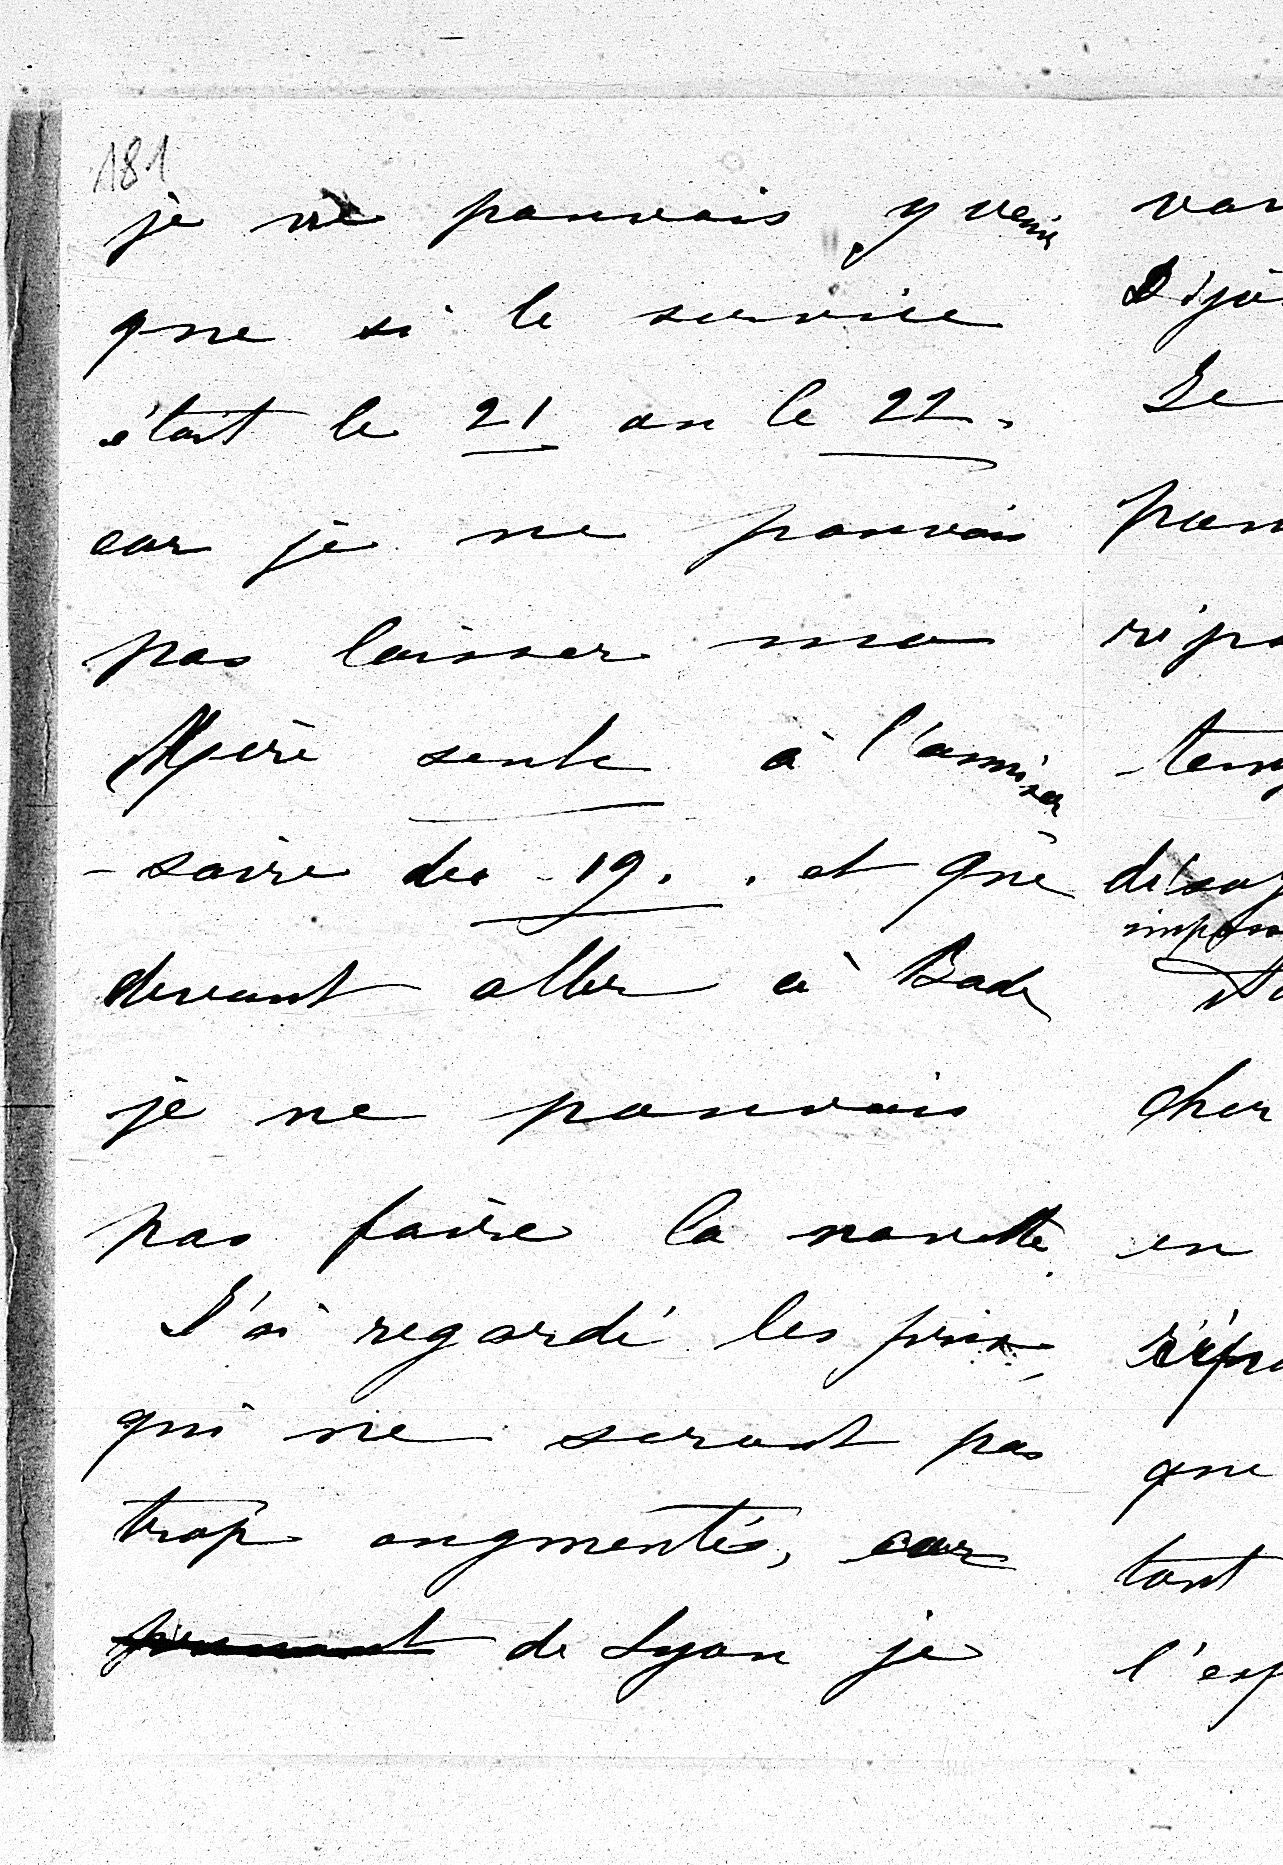 181
je ne pouvais y venir
que si le service
était le 21 ou le 22.
car je ne pouvais
pas laisser ma
Mère seule à l'anniver
-saire du 19. et que
devant aller à Bade
je ne pouvais
pas faire la navette.
J'ai regardé les prix
qui ne seront pas
trop augmentés, car
prenant de Lyon je
Déjà
Je
cher
en
que
tant